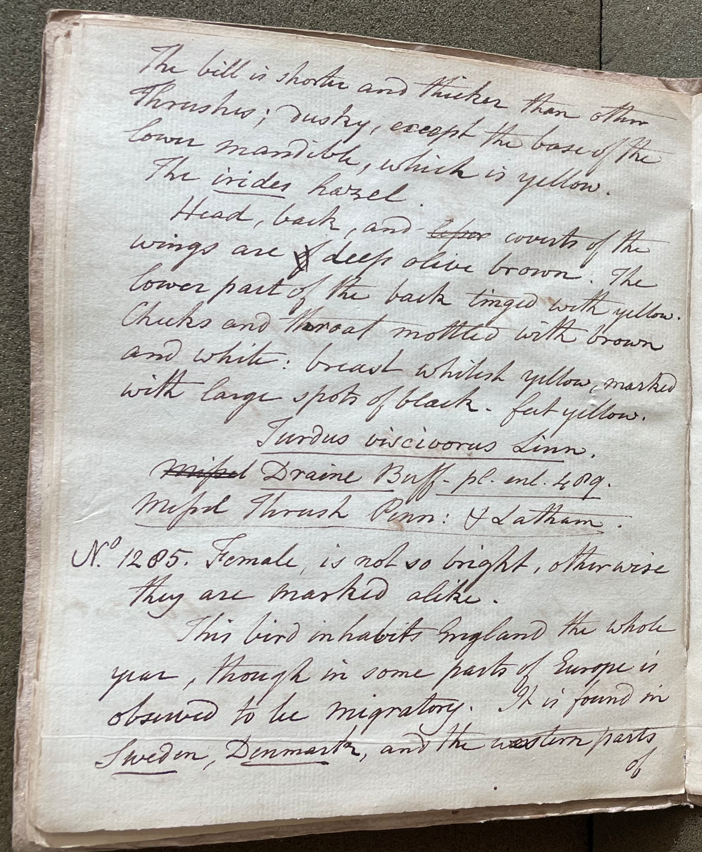 The bill is shorter and thicker than other
Thrushes; dusky, except the base of the
lower mandible, which is yellow.
The irides hazel.
Head, back, and coverts of the
wings are deep olive brown. The
lower part of the back tinged with yellow.
Cheeks and throat mottled with brown
and white: breast whitish yellow, marked
with large spots of black. feet yellow.
Turdus viscivorus Linn.
Missel Draine Buff. pl. enl. 489.
Missel Thrush Penn: & Latham.
No. 1285. Female, is not so bright, otherwise
they are marked alike.
This bird inhabits England the whole
year, though in some parts of Europe is
observed to be migratory. It is found in
Sweden, Denmark, and the western parts
of